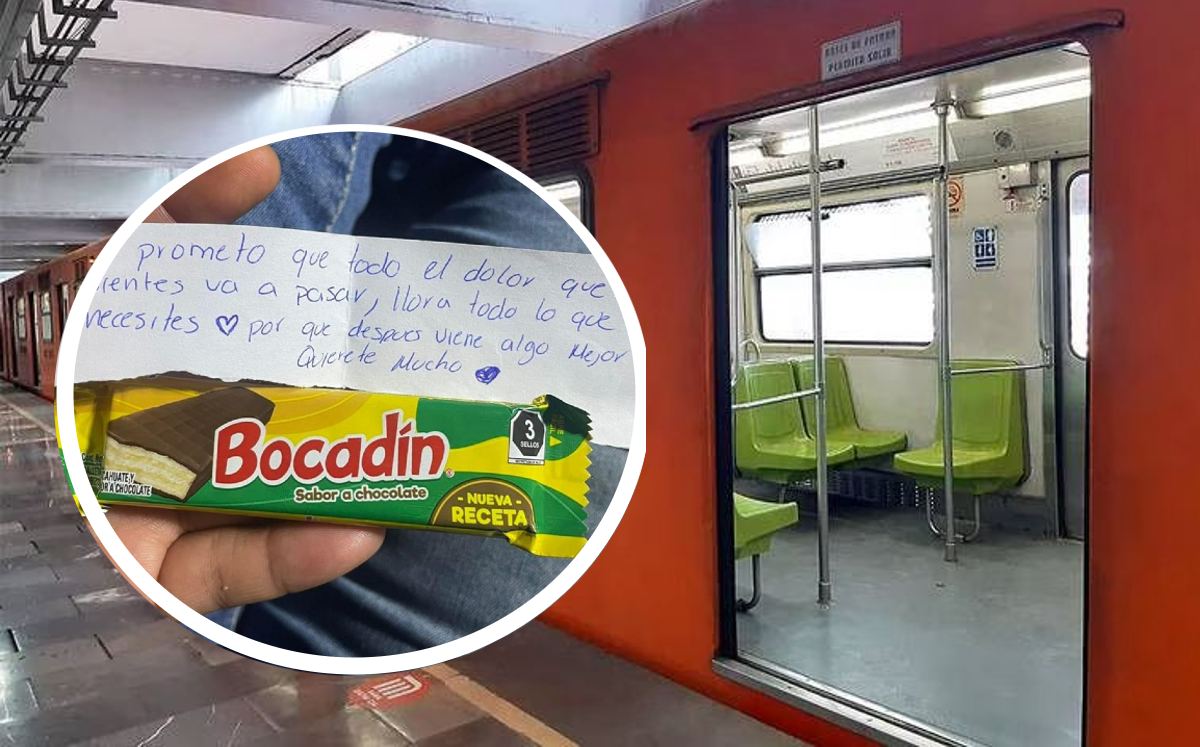 ANTES DE ENTRAR
PERMITA SALIR
prometo que todo el dolor que
ientes va a pasar, llora todo lo que
necesites ♡ por que despues viene algo Mejor
Quierete Mucho
Bocadín
Sabor a chocolate
3
SELLOS
- NUEVA -
RECETA
CAHUATE Y
OR A CHOCOLATE